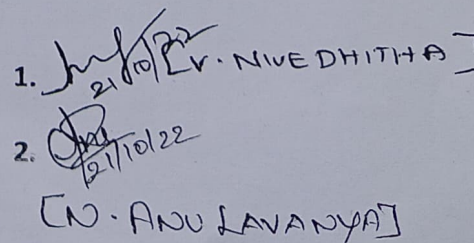 1. 21/10/22 [V. NIVEDHITHA]
2. 21/10/22
[N. ANU LAVANYA]